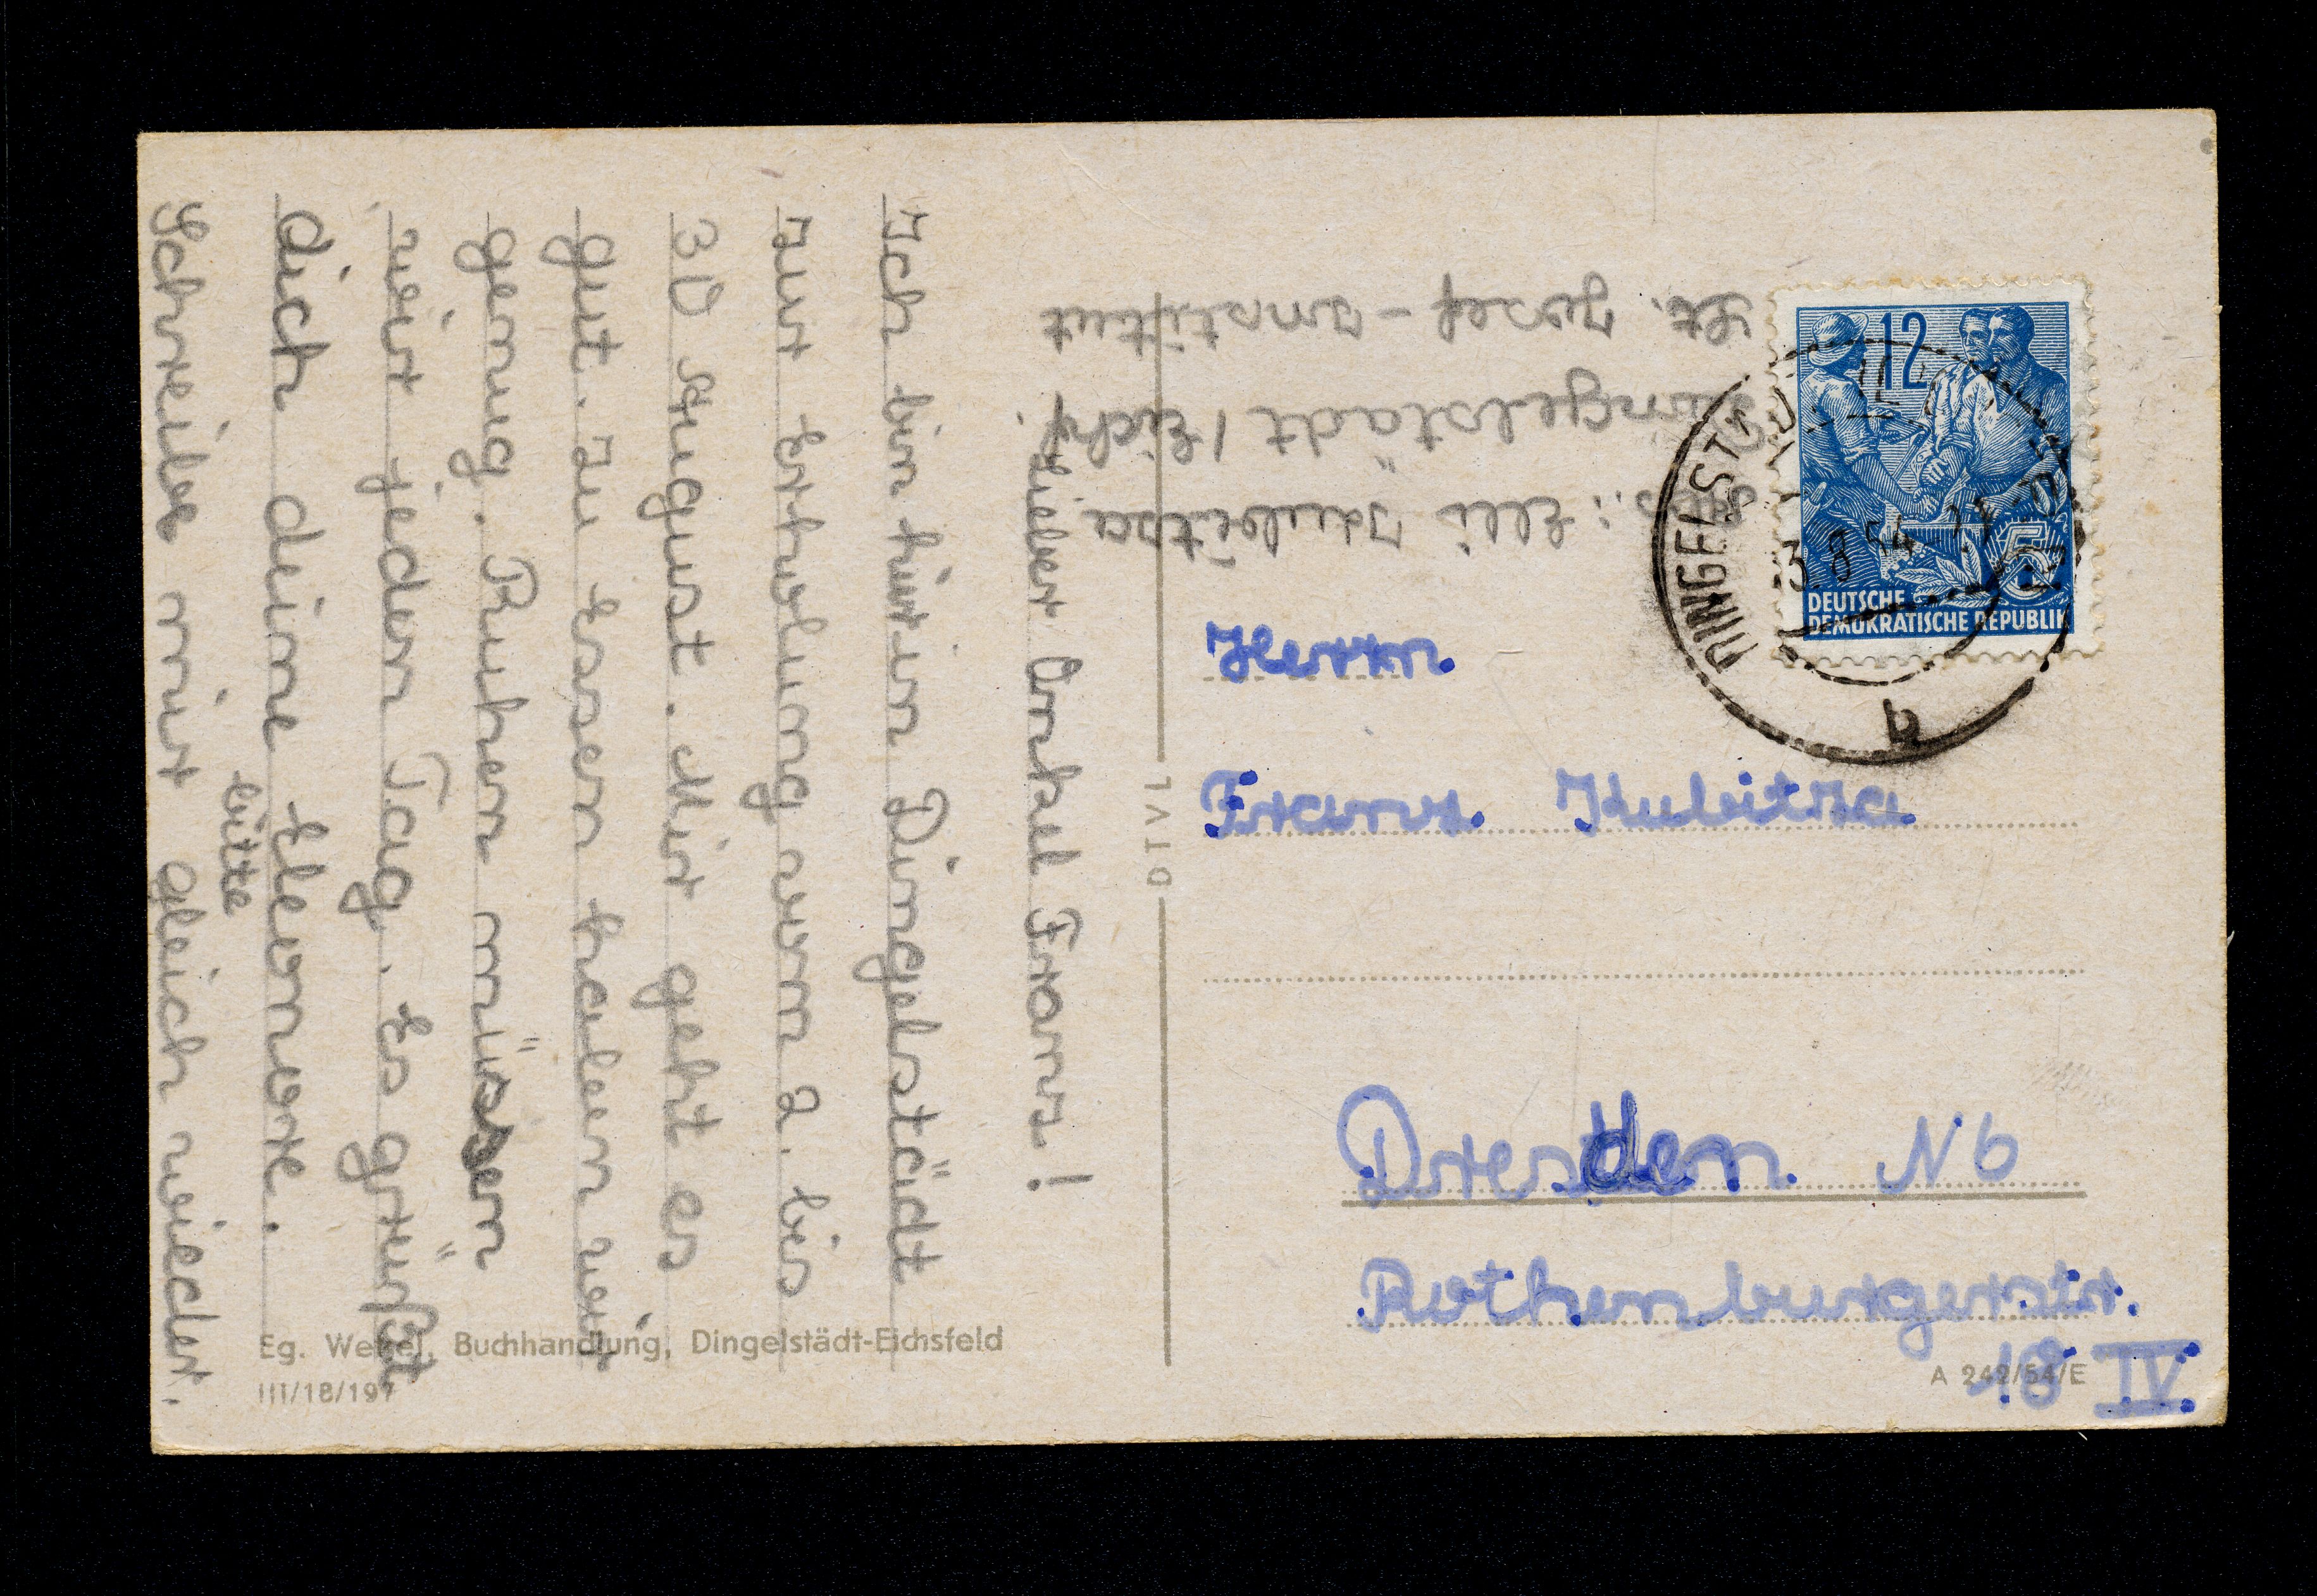 Lieber Onkel Franz!
Ich bin hier in Dingelstädt
zur Erholung vom 2. bis
30 August. Mir geht es
gut. Zu Essen haben wir
genug. Ruhen müssen
wir jeden Tag. Es grüßt
dich deine Eleonore.
bitte
Schreibe mir gleich wieder.
Abs.: Elli Kubitza
Dingelstädt / Eichsf.
St. Josef-Institut
12
DEUTSCHE
DEMOKRATISCHE REPUBLIK
DINGELSTÄDT
3.8.54
a
Herrn
Franz Kubitza
Dresden N 6
Rothenburgerstr.
18 IV.
DTVL
Eg. Wetzel, Buchhandlung, Dingelstädt-Eichsfeld
III/18/197
A 242/54/E